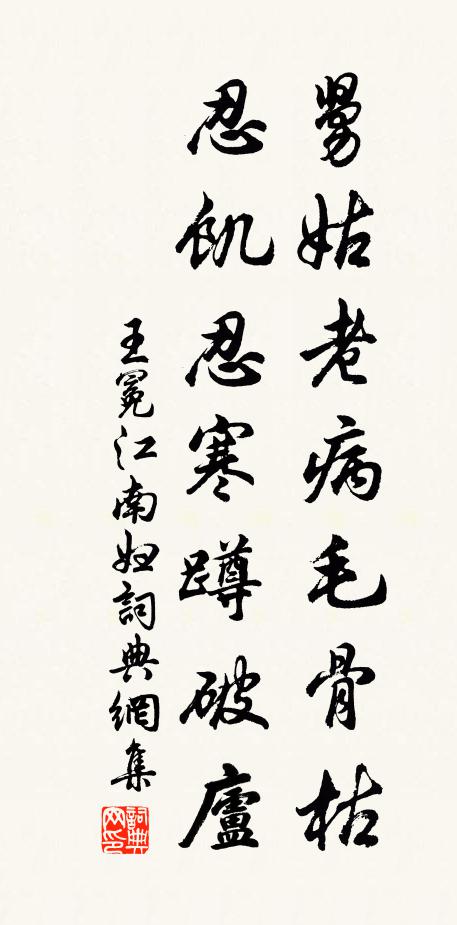 舅姑老病毛骨枯
忍飢忍寒蹲破廬
王冕江南妇詞典網集
詞典
网印